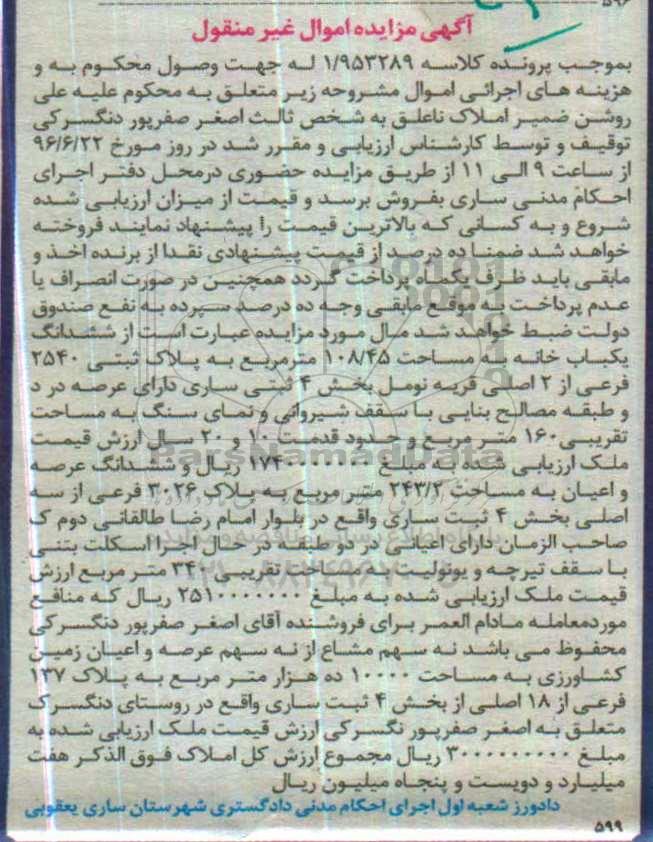 ۵۹۶
آگهی مزایده اموال غیر منقول
بموجب پرونده کلاسه ۱/۹۵۳۲۸۹ له جهت وصول محکوم به و
هزینه های اجرائی اموال مشروحه زیر متعلق به محکوم علیه علی
روشن ضمیر املاک ناعلق به شخص ثالث اصغر صفرپور دنگسرکی
توقیف و توسط کارشناس ارزیابی و مقرر شد در روز مورخ ۹۶/۶/۲۲
از ساعت ۹ الی ۱۱ از طریق مزایده حضوری درمحل دفتر اجرای
احکام مدنی ساری بفروش برسد و قیمت از میزان ارزیابی شده
شروع و به کسانی که بالاترین قیمت را پیشنهاد نمایند فروخته
خواهد شد ضمنا ده درصد از قیمت پیشنهادی نقدا از برنده اخذ و
مابقی باید ظرف یکماه پرداخت گردد همچنین در صورت انصراف یا
عدم پرداخت به موقع مابقی وجه ده درصد سپرده به نفع صندوق
دولت ضبط خواهد شد مال مورد مزایده عبارت است از ششدانگ
یکباب خانه به مساحت ۱۰۸/۴۵ مترمربع به پلاک ثبتی ۲۵۴۰
فرعی از ۲ اصلی قریه نومل بخش ۴ ثبتی ساری دارای عرصه در د
و طبقه مصالح بنایی با سقف شیروانی و نمای سنگ به مساحت
تقریبی ۱۶۰ متر مربع و حدود قدمت ۱۰ و ۲۰ سال ارزش قیمت
ملک ارزیابی شده به مبلغ ۱۷۴۰۰۰۰۰۰۰ ریال و ششدانگ عرصه
و اعیان به مساحت ۲۴۳/۲ متر مربع به پلاک ۳۰۲۶ فرعی از سه
اصلی بخش ۴ ثبت ساری واقع در بلوار امام رضا طالقانی دوم ک
صاحب الزمان دارای اعیانی در دو طبقه در حال اجرا اسکلت بتنی
با سقف تیرچه و یونولیت به مساحت تقریبی ۳۴۰ متر مربع ارزش
قیمت ملک ارزیابی شده به مبلغ ۲۵۱۰۰۰۰۰۰۰ ریال که منافع
موردمعامله مادام العمر برای فروشنده آقای اصغر صفرپور دنگسرکی
محفوظ می باشد نه سهم مشاع از نه سهم عرصه و اعیان زمین
کشاورزی به مساحت ۱۰۰۰۰ ده هزار متر مربع به پلاک ۱۳۷
فرعی از ۱۸ اصلی از بخش ۴ ثبت ساری واقع در روستای دنگسرک
متعلق به اصغر صفرپور نگسرکی ارزش قیمت ملک ارزیابی شده به
مبلغ ۳۰۰۰۰۰۰۰۰۰ ریال مجموع ارزش کل املاک فوق الذکر هفت
میلیارد و دویست و پنجاه میلیون ریال
دادورز شعبه اول اجرای احکام مدنی دادگستری شهرستان ساری یعقوبی
۵۹۹
ParsNamadData